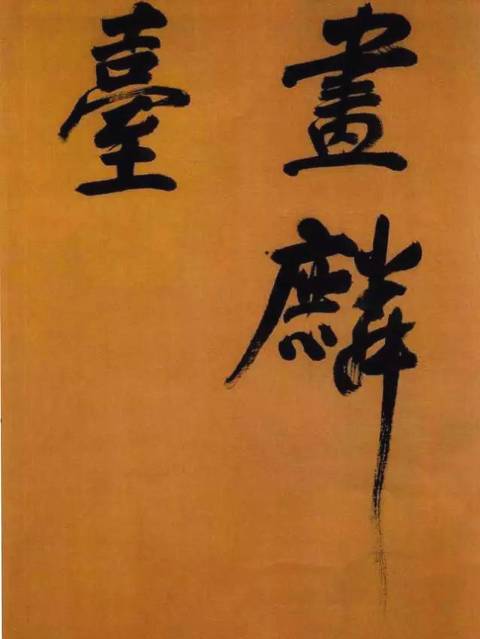 畫麟
臺